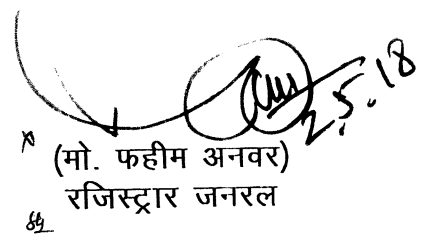 2.5.18
(मो. फहीम अनवर)
रजिस्ट्रार जनरल